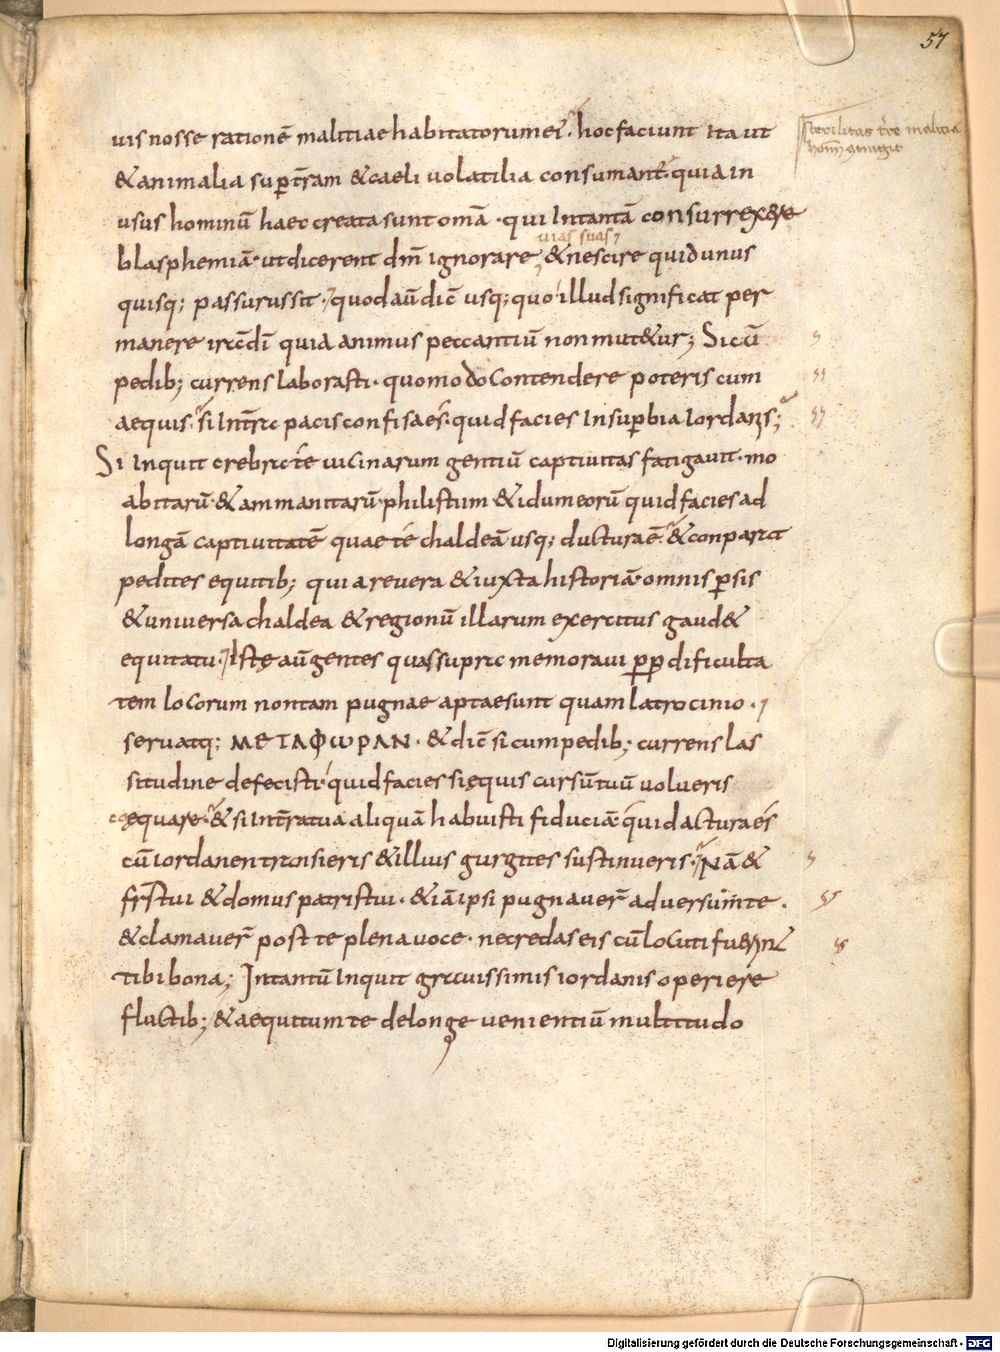 57
uis nosse rationē malitiae habitatorum ei᷒. hoc faciunt ita ut
sterilitas tr̄ae malitia
hom̄ contigit
& animalia sup̱ tr̄am & caeli uolatilia consumant᷒. quia in
usus hominū haec creata sunt om̄a · qui Intantā consurrex&re
uias suas
blasphemiā · ut dicerent dm̄ ignorare, & nescire quid unus
quisq; passurus sit · quod aū dic̄ usq; quo illud significat per
manere irā dī quia animus peccantiū non mut&ur; Si cū
pedib; currens laborasti · quomodo contendere poteris cum
aequis. si In tr̄a pacis confisa es · quid facies In sup̱bia Iordanis;
Si inquit crebra te uicinarum gentiū captiuitas fatigauit · mo
abitarū · & ammanitarū · philistiim & idumeorū quid facies ad
longā captiuitatē quae te chaldeā usq; ductura ē · & conparat
pedites equitib; quia reuera & iuxta historiā · omnis p̱sis
& uniuersa chaldea & regionū illarum exercitus gaud&
equitatu · Istę aū gentes quas supra memoraui p̱p̱ dificulta
tem locorum non tam pugnae aptae sunt quam latrocinio ·
seruatq; ΜΕΤΑΦΩΡΑΝ · & dic̄ si cum pedib; currens las
situdine defecisti · quid facies si ęquis cursū tuū uolueris
coęquare · & si In tr̄a tua aliquā habuisti fiduciā quid actura es
cū iordanen transieris & illius gurgites sustinueris · Nā &
fr̄s tui & domus patris tui · & iā ipsi pugnauer̄ aduersūm te .
& clamauer̄ post te plena uoce · ne credas eis cū locuti fuerint
tibi bona; Intantū inquit grauissimis iordanis operiere
fluctib; & aequitum te de longe uenientiū multitudo
Digitalisierung gefördert durch die Deutsche Forschungsgemeinschaft - DFG